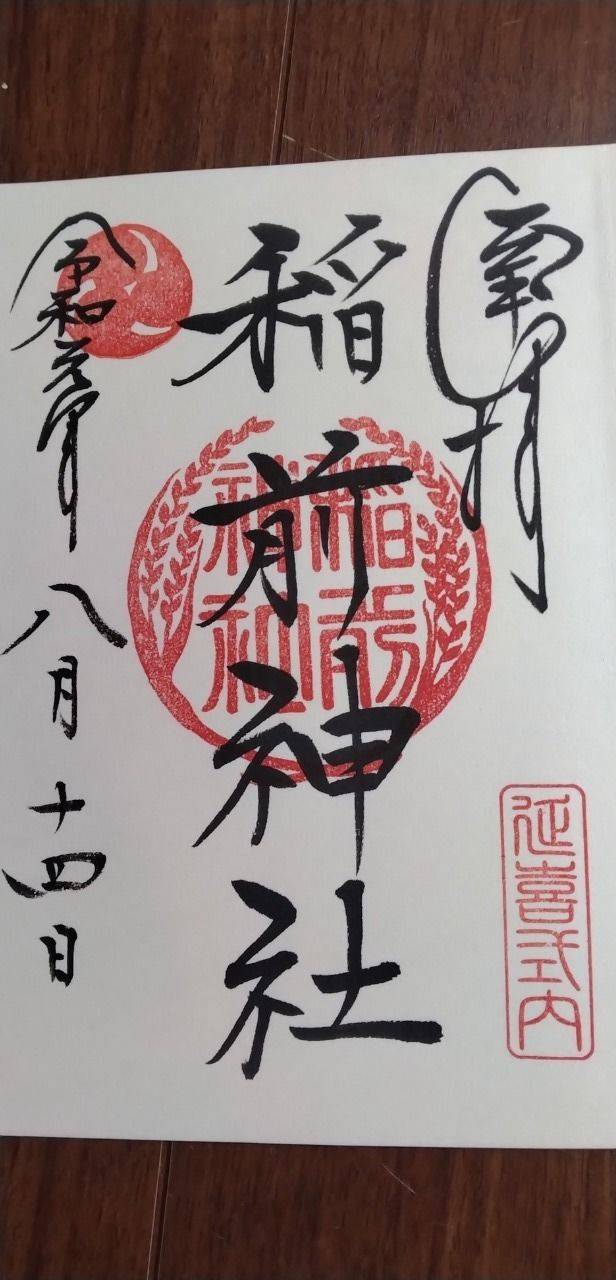 奉拝
延喜式内
稲前神社
稲前
神社
令和元年八月十四日